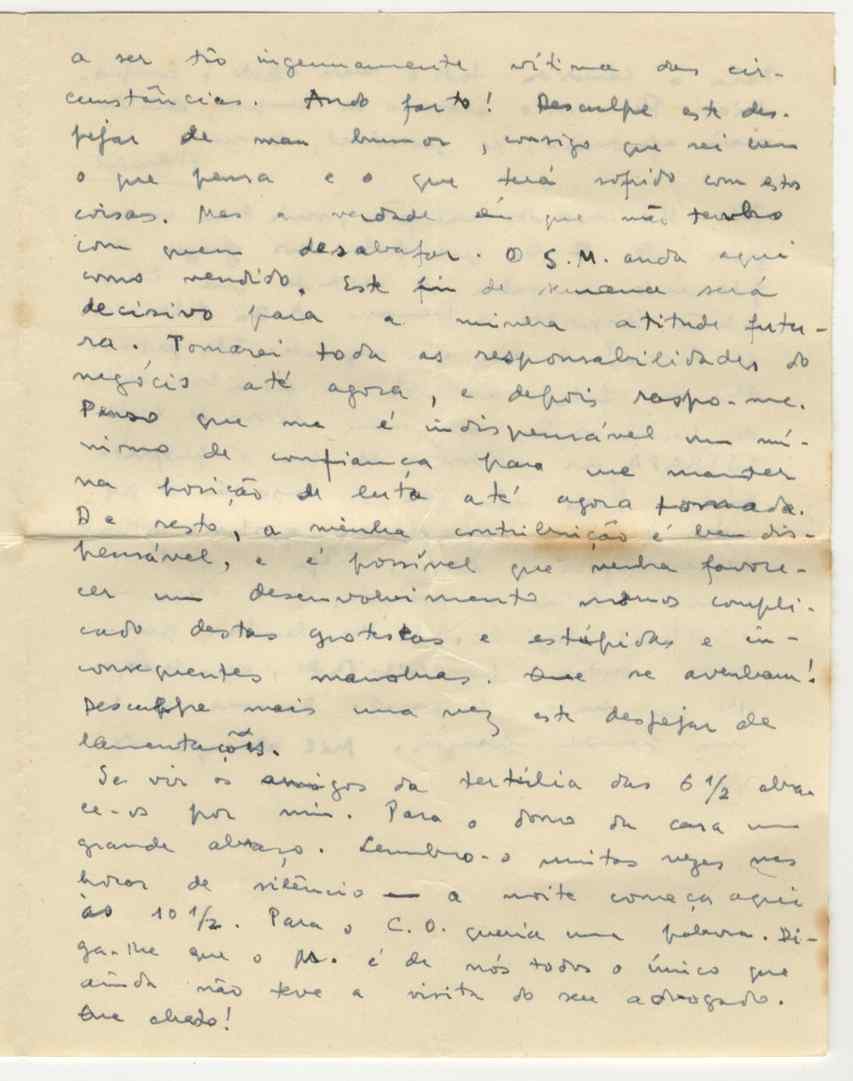 a ser tão ingenuamente vítima das cir-
cunstâncias. Ando farto! Desculpe este des-
pejar de mau humor, consigo que sei bem
o que pensa e o que terá sofrido com estas
coisas. Mas a verdade é que não tenho
com quem desabafar. O S.M. anda aqui
como vendido. Este fim de semana será
decisivo para a minha atitude futu-
ra. Tomarei toda as responsabilidades do
negócio até agora, e depois raspo-me.
Penso que me é indispensável um mí-
nimo de confiança para me manter
na posição de luta até agora tomada.
De resto, a minha contribuição é bem dis-
pensável, e é possível que venha favore-
cer um desenvolvimento menos compli-
cado destas grotescas e estúpidas e in-
consequentes manobras. Que se avenham!
Desculpe mais uma vez este despejar de
lamentações.
Se vir os amigos da tertúlia das 6 1/2 abra-
ce-os por mim. Para o dono da casa um
grande abraço. Lembro-o muitas vezes nas
horas de silêncio — a noite começa aqui
às 10 1/2. Para o C.O. queria uma palavra. Di-
ga-lhe que o é de nós todos o único que
ainda não teve a visita do seu advogado.
Que